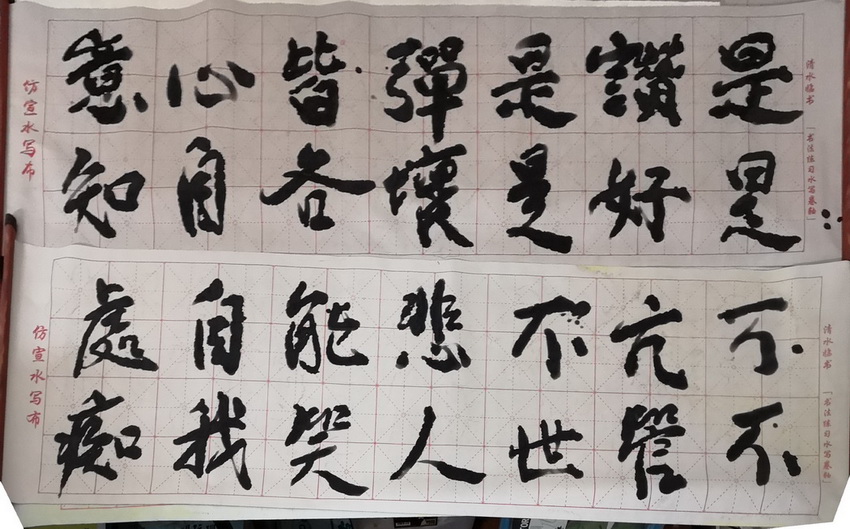 是讚是彈皆心意
是好是壞各自知
不亢不悲能自處
不管世人笑我痴
清水临书
「书法练习水写卷轴」
仿宣水写布
清水临书
「书法练习水写卷轴」
仿宣水写布